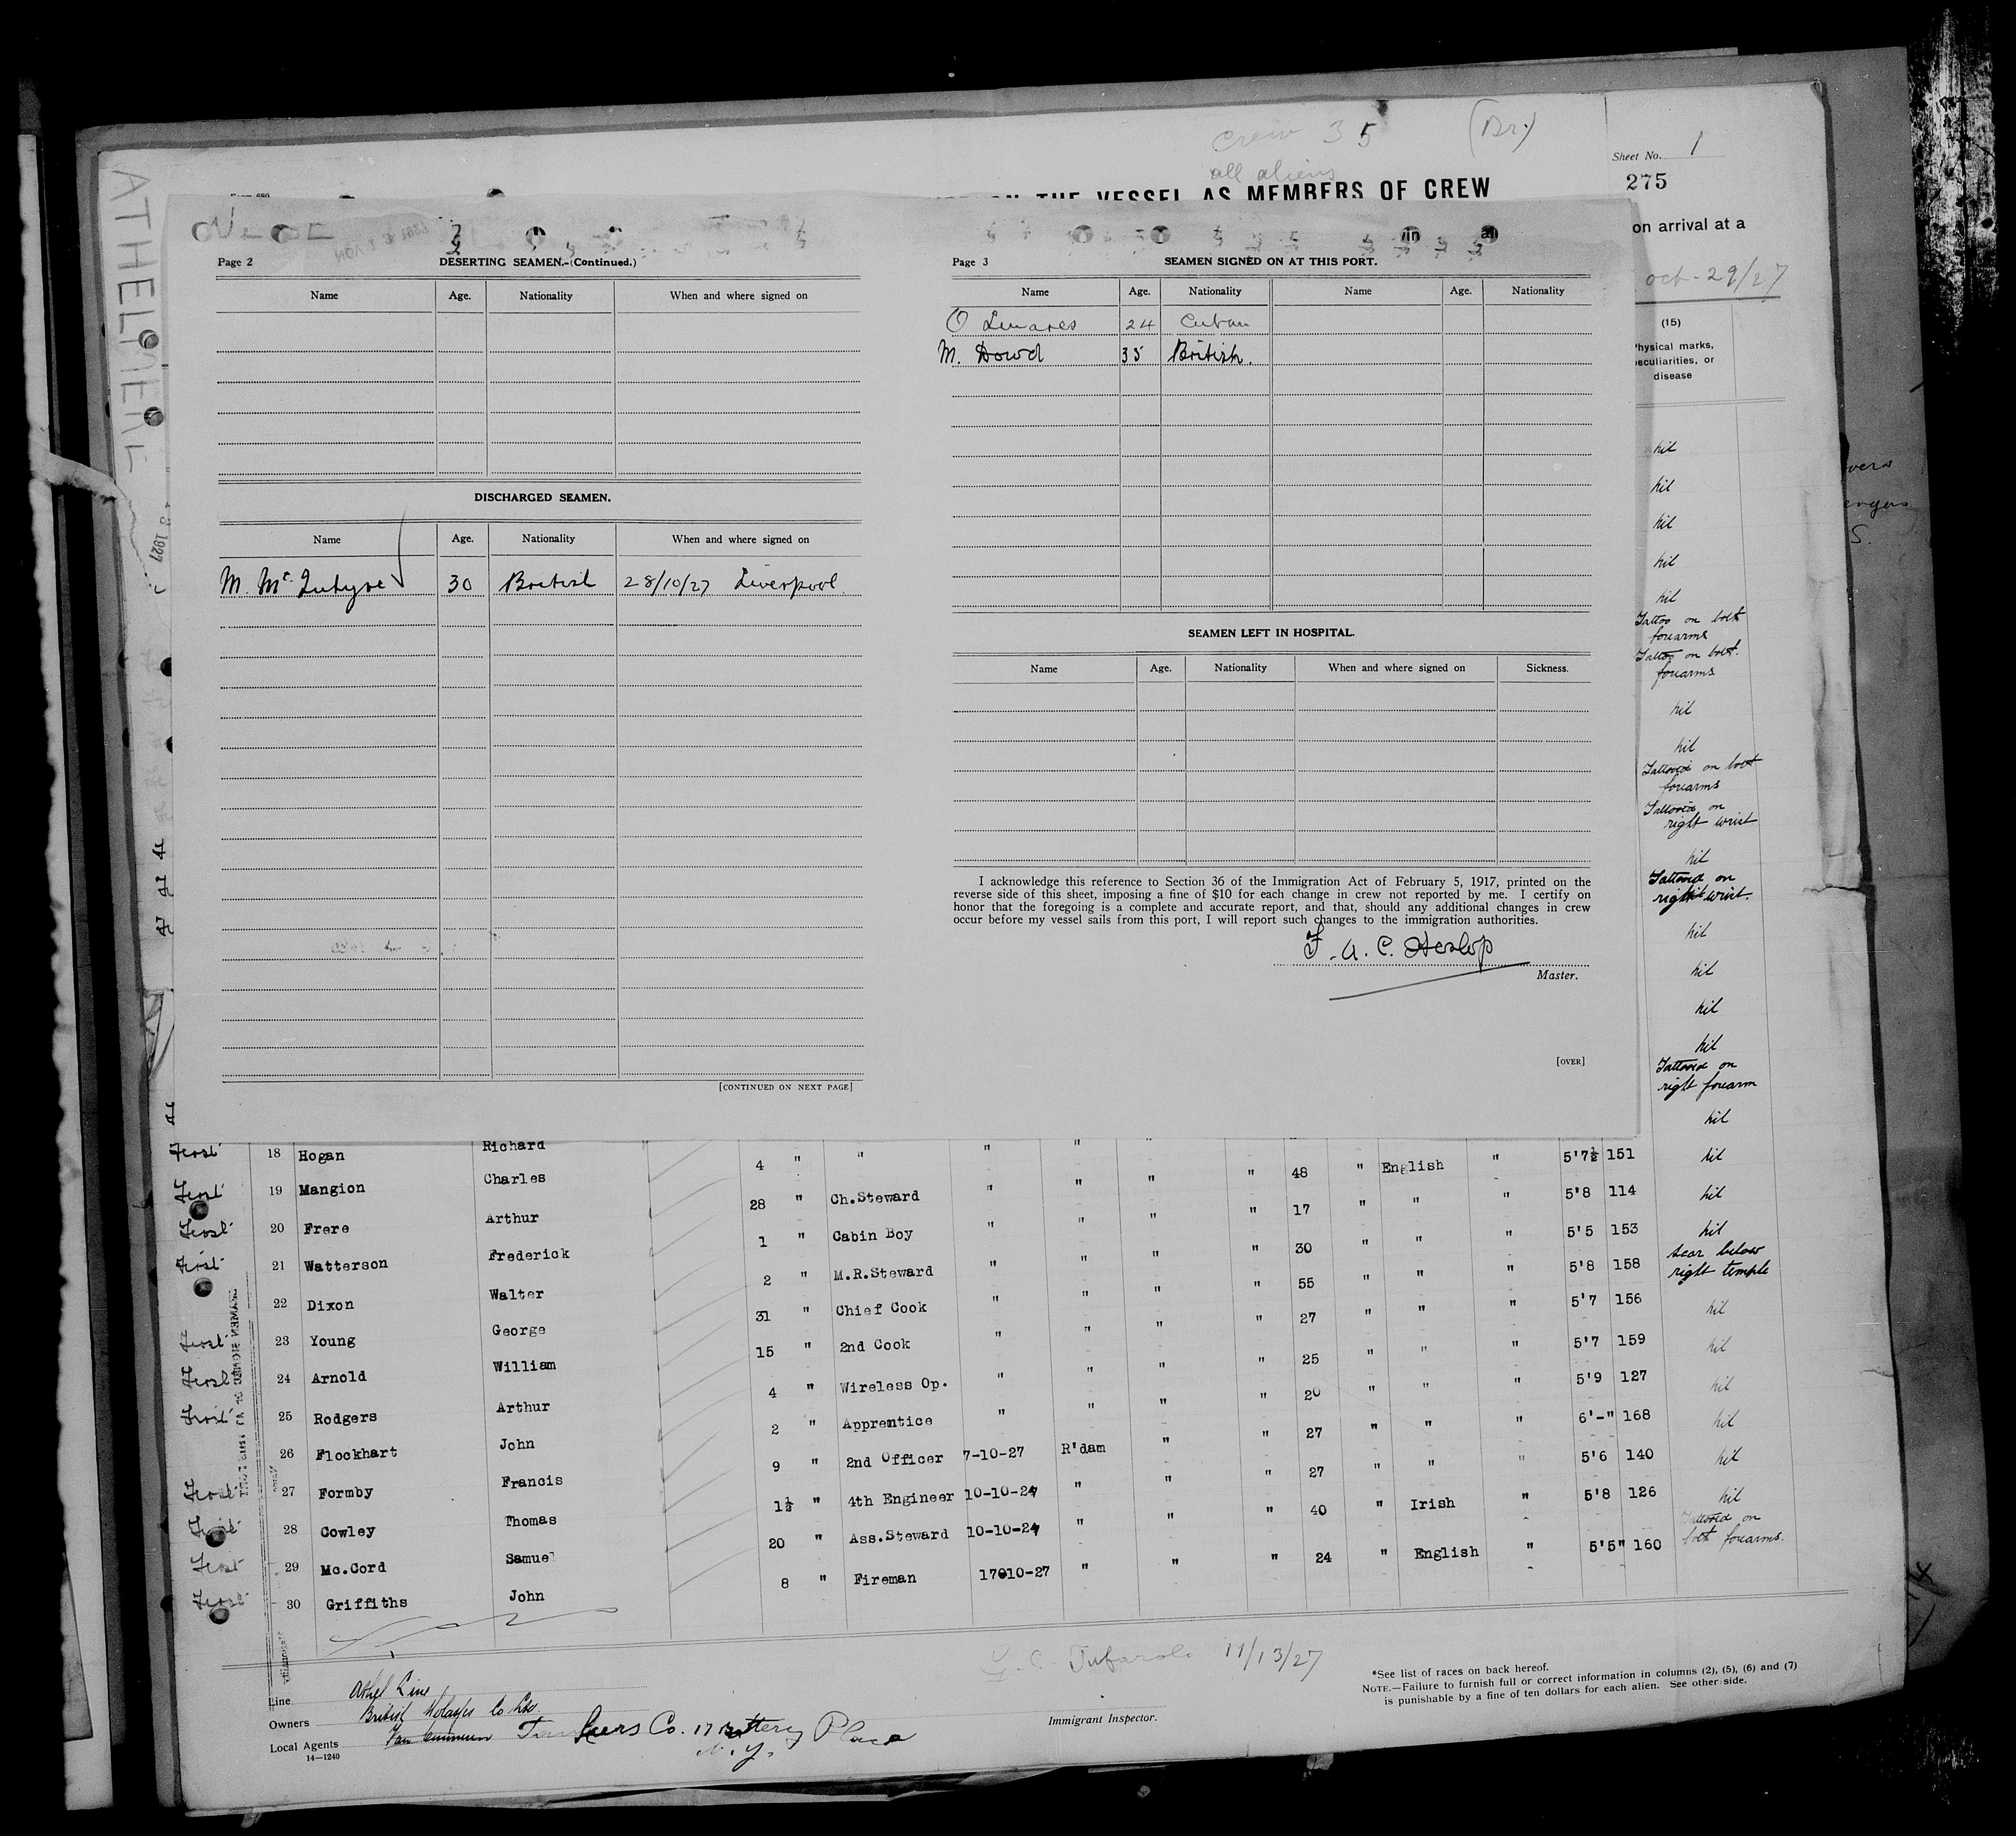 crew 35 (Br.)
all aliens
Sheet No. 1
275
ON THE VESSEL AS MEMBERS OF CREW
on arrival at a
oct-29/27
(15)
Physical marks,
peculiarities, or
disease
Page 2
DESERTING SEAMEN.-(Continued.)
Name Age. Nationality When and where signed on
DISCHARGED SEAMEN.
Name Age. Nationality When and where signed on
M. Mc Intyre 30 British 28/10/27 Liverpool.
[CONTINUED ON NEXT PAGE]
Page 3
SEAMEN SIGNED ON AT THIS PORT.
Name Age. Nationality Name Age. Nationality
O Linares 24 Cuban
M. Dowd 35 British.
SEAMEN LEFT IN HOSPITAL.
Name Age. Nationality When and where signed on Sickness.
I acknowledge this reference to Section 36 of the Immigration Act of February 5, 1917, printed on the
reverse side of this sheet, imposing a fine of $10 for each change in crew not reported by me. I certify on
honor that the foregoing is a complete and accurate report, and that, should any additional changes in crew
occur before my vessel sails from this port, I will report such changes to the immigration authorities.
F. A. C. Heslop
Master.
[OVER]
nil
nil
nil
nil
nil
Tattoo on both
forearms
Tattoo on both
forearms
nil
nil
Tattooed on both
forearms
Tattooed on
right wrist
nil
Tattooed on
right wrist.
nil
nil
nil
nil
Tattooed on
right forearm
nil
18 Hogan Richard 4 " " " " " " 48 " English " 5'7½ 151 nil
19 Mangion Charles 28 " Ch.Steward " " " " 17 " " " 5'8 114 nil
20 Frere Arthur 1 " Cabin Boy " " " " 30 " " " 5'5 153 nil
21 Watterson Frederick 2 " M.R.Steward " " " " 55 " " " 5'8 158 scar below
right temple
22 Dixon Walter 31 " Chief Cook " " " " 27 " " " 5'7 156 nil
23 Young George 15 " 2nd Cook " " " " 25 " " " 5'7 159 nil
24 Arnold William 4 " Wireless Op. " " " " 20 " " " 5'9 127 nil
25 Rodgers Arthur 2 " Apprentice " " " " 27 " " " 6'-" 168 nil
26 Flockhart John 9 " 2nd Officer 7-10-27 R'dam " " 27 " " " 5'6 140 nil
27 Formby Francis 1½ " 4th Engineer 10-10-27 " " " 40 " Irish " 5'8 126 nil
28 Cowley Thomas 20 " Ass.Steward 10-10-27 " " " 24 " English " 5'5" 160 Tattooed on
both forearms.
29 Mc.Cord Samuel 8 " Fireman 17-10-27 "
30 Griffiths John
11/13/27
Line Athel Line
Owners British Molasses Co Ltd.
Local Agents Tankers Co. 17 Battery Place
N.Y.
14-1240
Immigrant Inspector.
*See list of races on back hereof.
NOTE.—Failure to furnish full or correct information in columns (2), (5), (6) and (7)
is punishable by a fine of ten dollars for each alien. See other side.